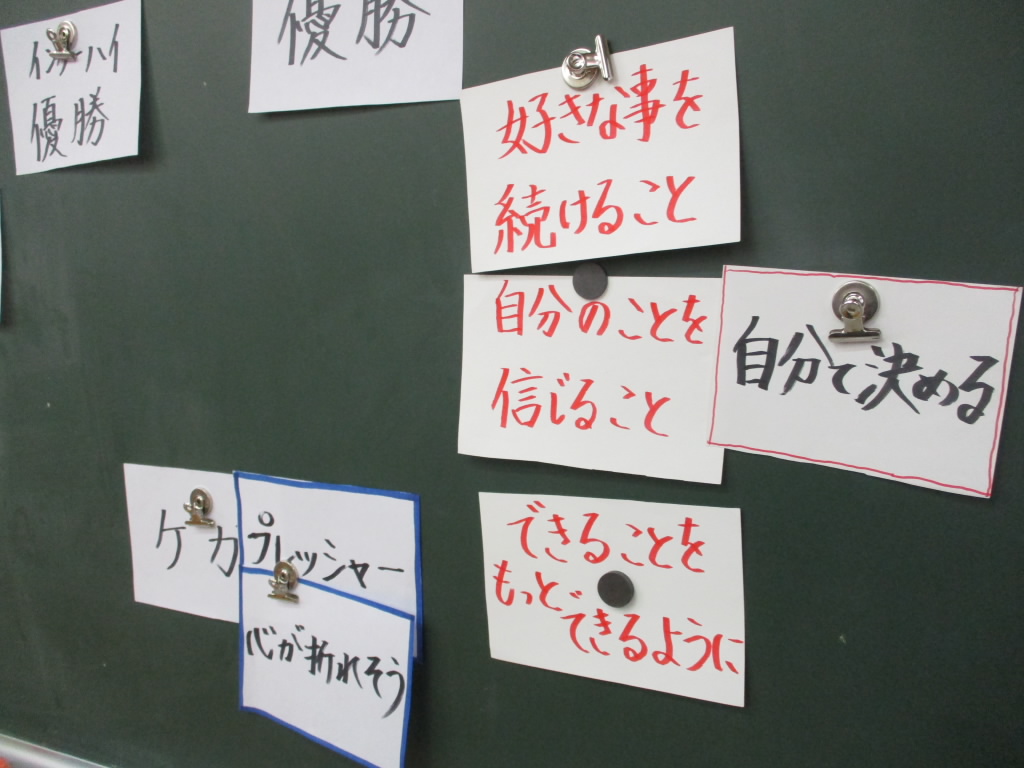 インターハイ
優勝
優勝
好きな事を
続けること
自分のことを
信じること
自分で決める
ケガ
プレッシャー
心が折れそう
できることを
もっと
できるように